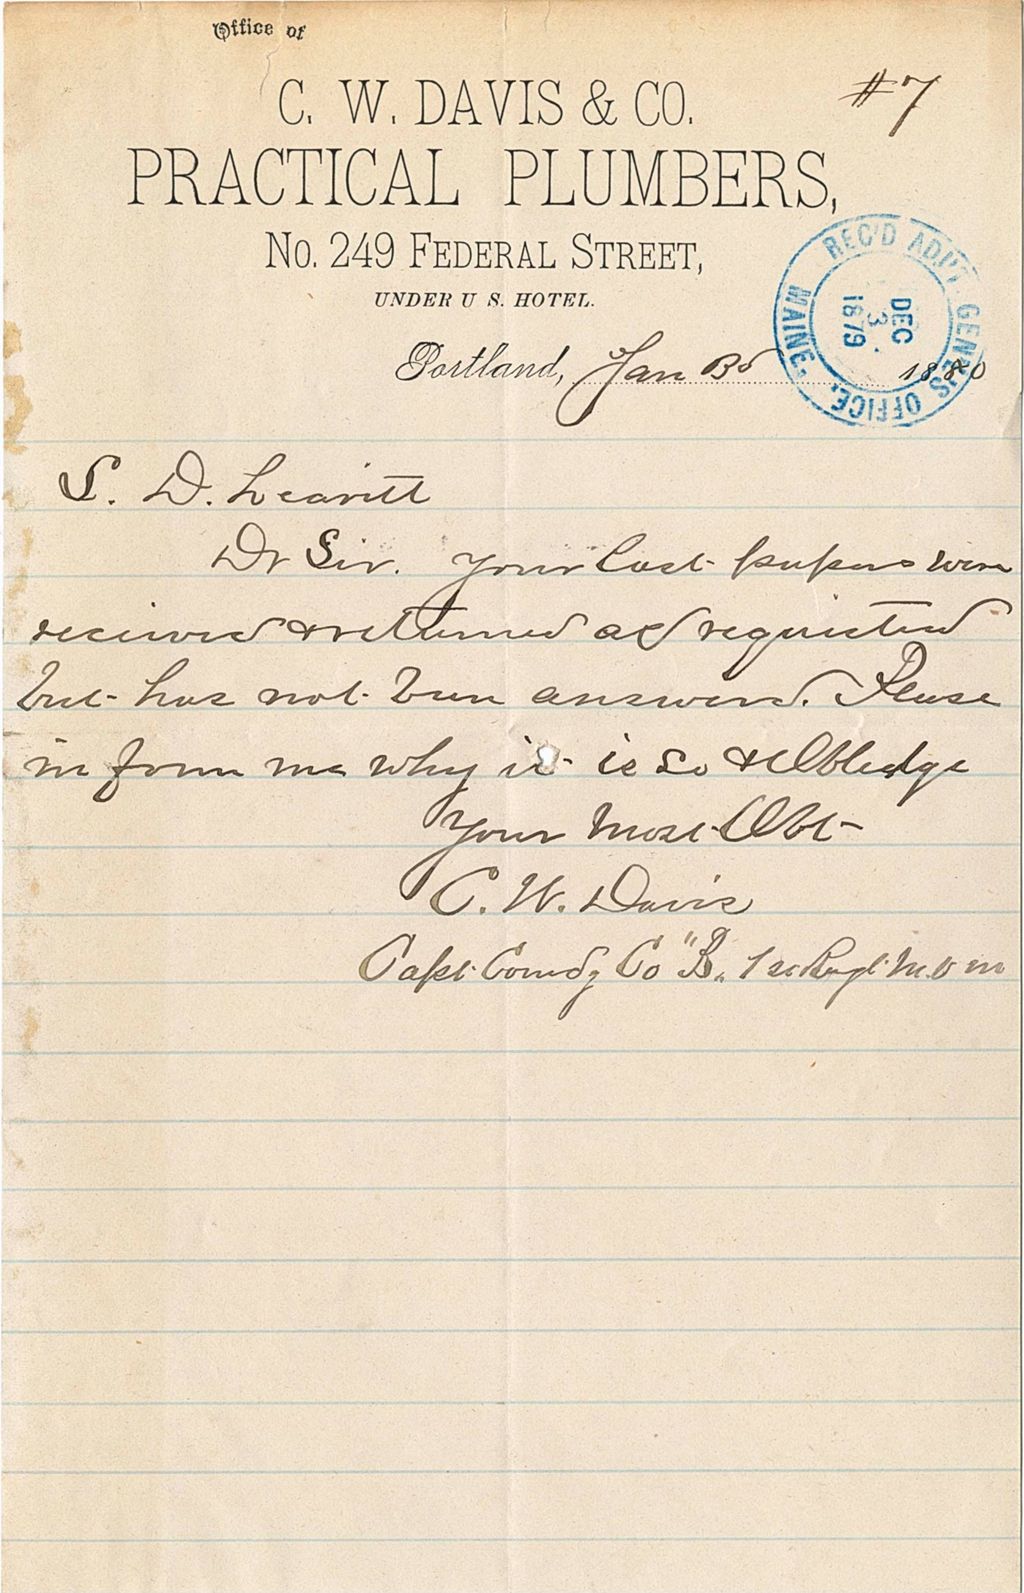 Office of
C. W. DAVIS & CO.
#7
PRACTICAL PLUMBERS,
No. 249 FEDERAL STREET,
UNDER U S. HOTEL.
REC'D ADJ'T. GENL'S OFFICE, MAINE.
DEC
3
1879
Portland, Jan 1880
S. D. Leavitt
Dr Sir. Your last papers were
received & returned as requisted
but has not been answerd. Please
in form me why it is so & Obledge
Your Most Obt
C. W. Davis
Capt Comdg Co "B" 1st Regt M. V. M